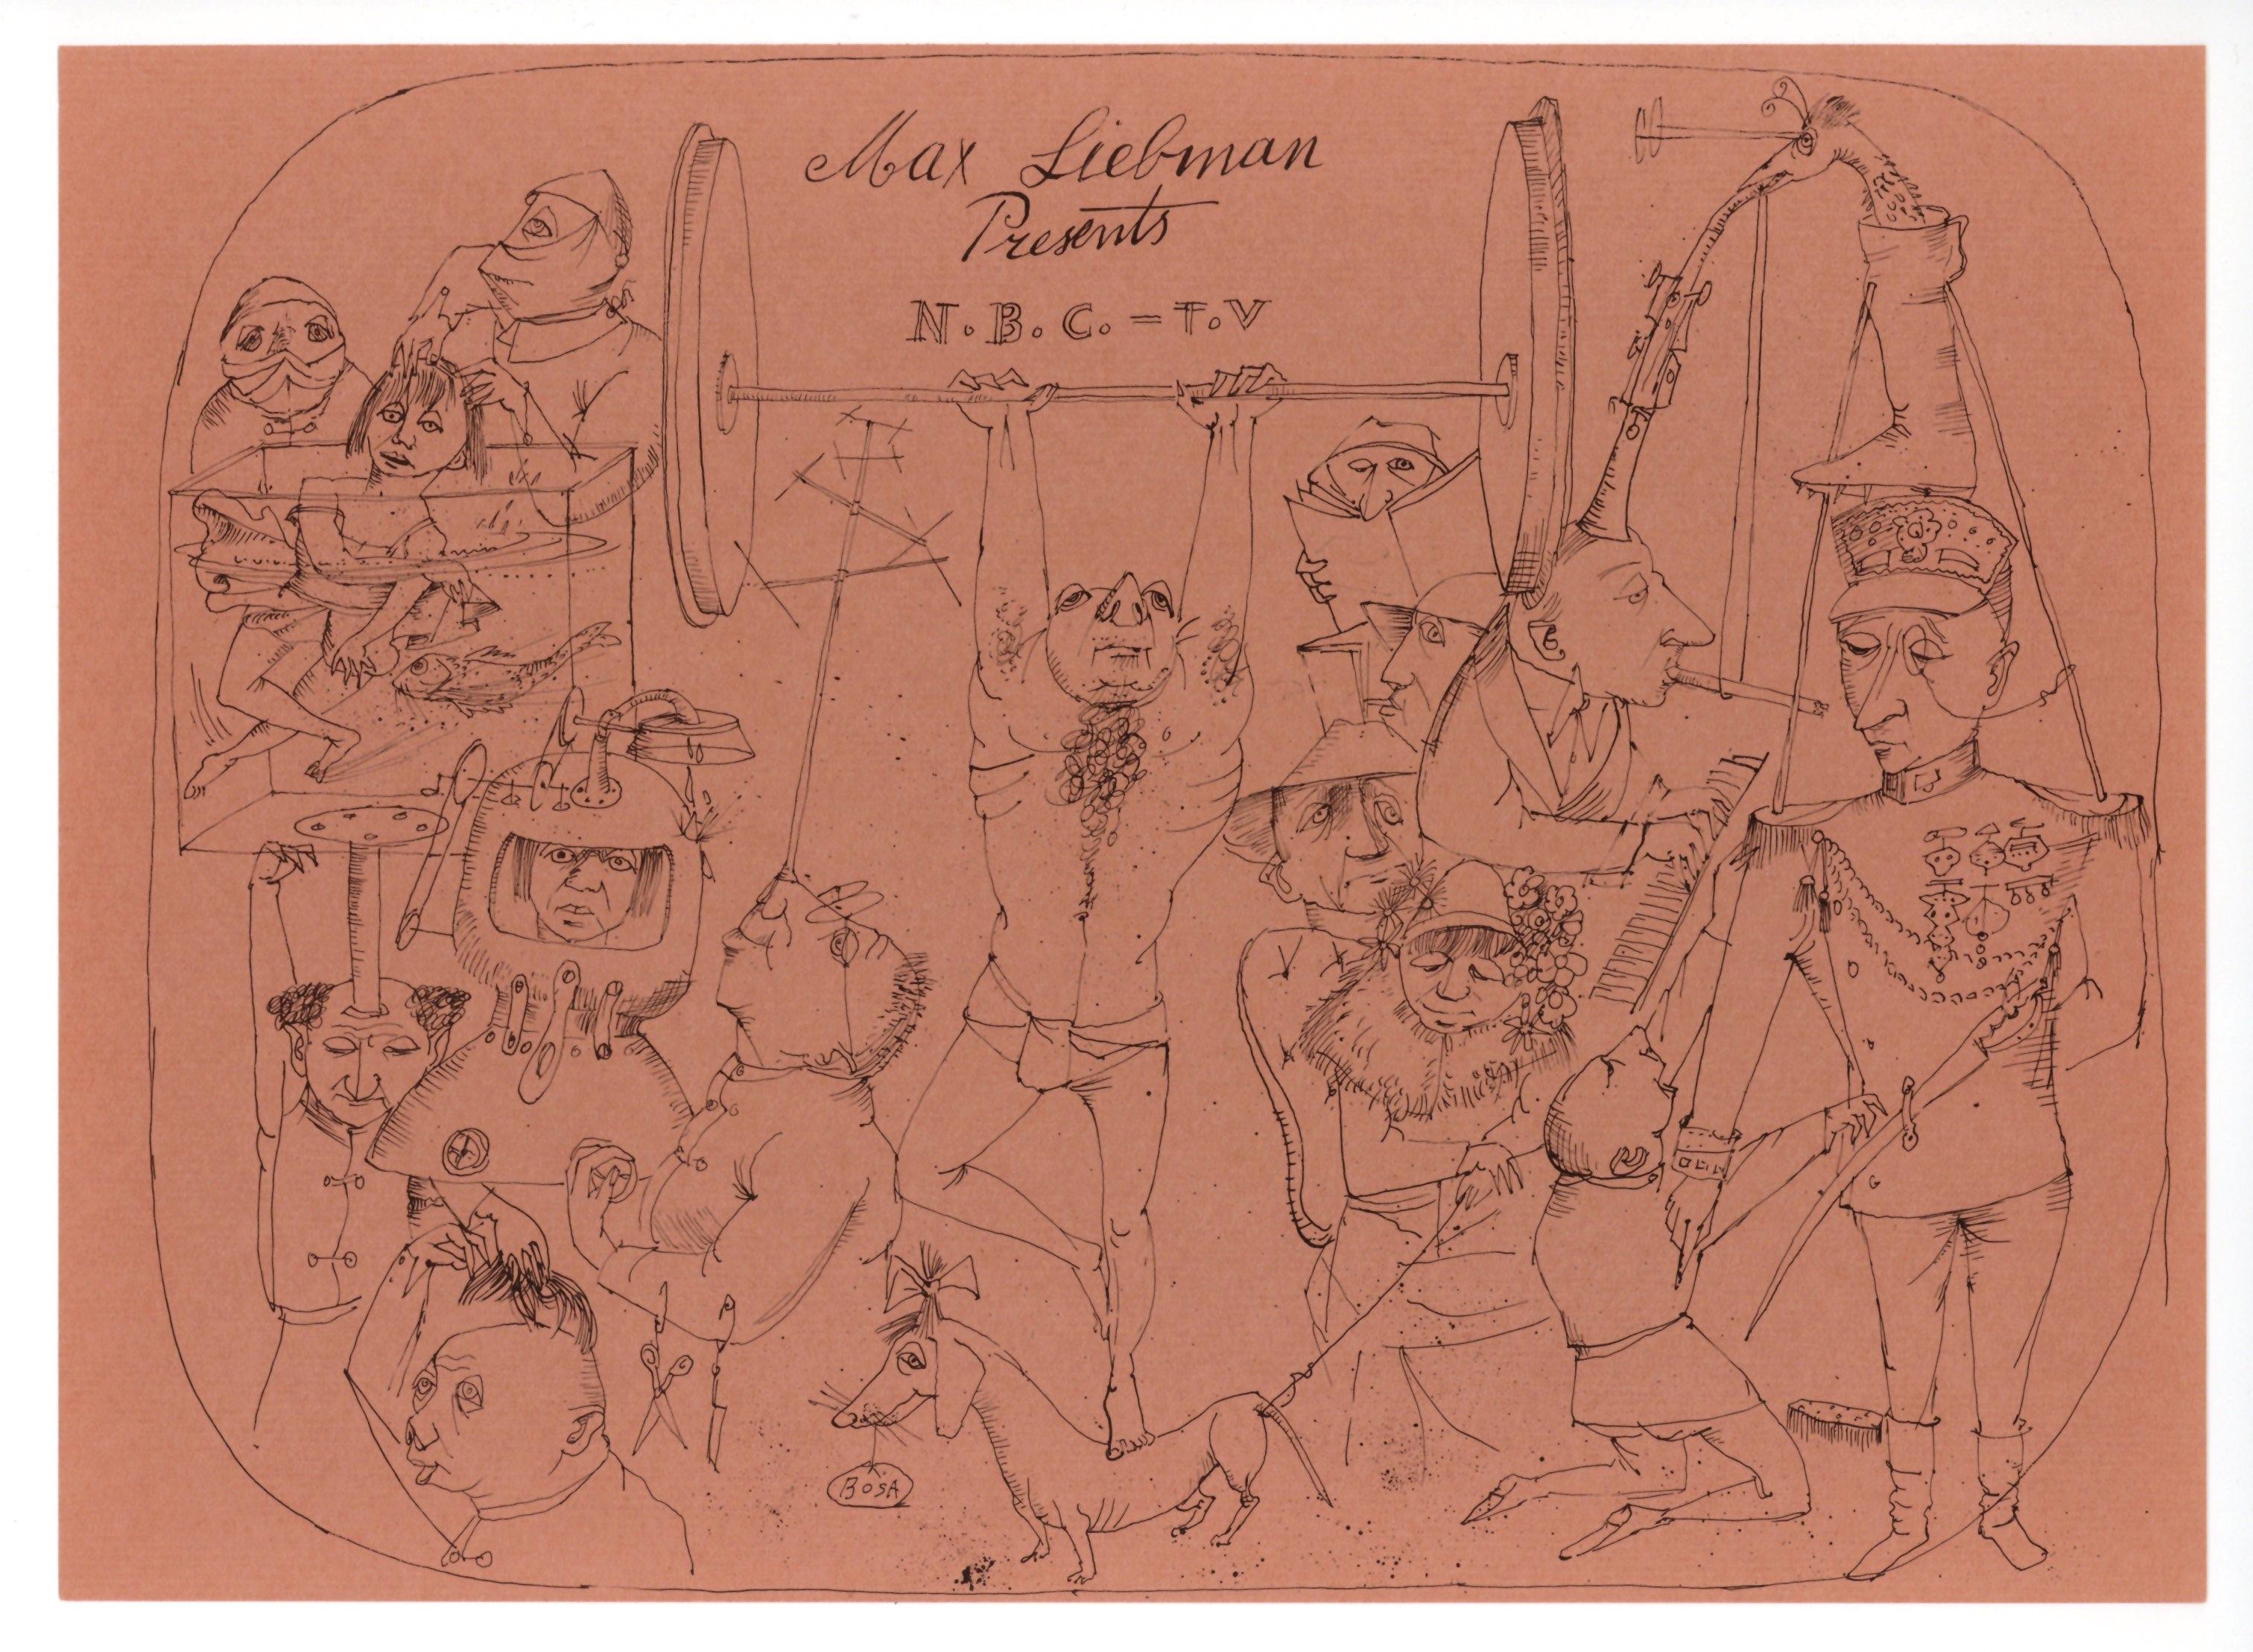 Max Liebman
Presents
N.B.C.-T.V
BOSA